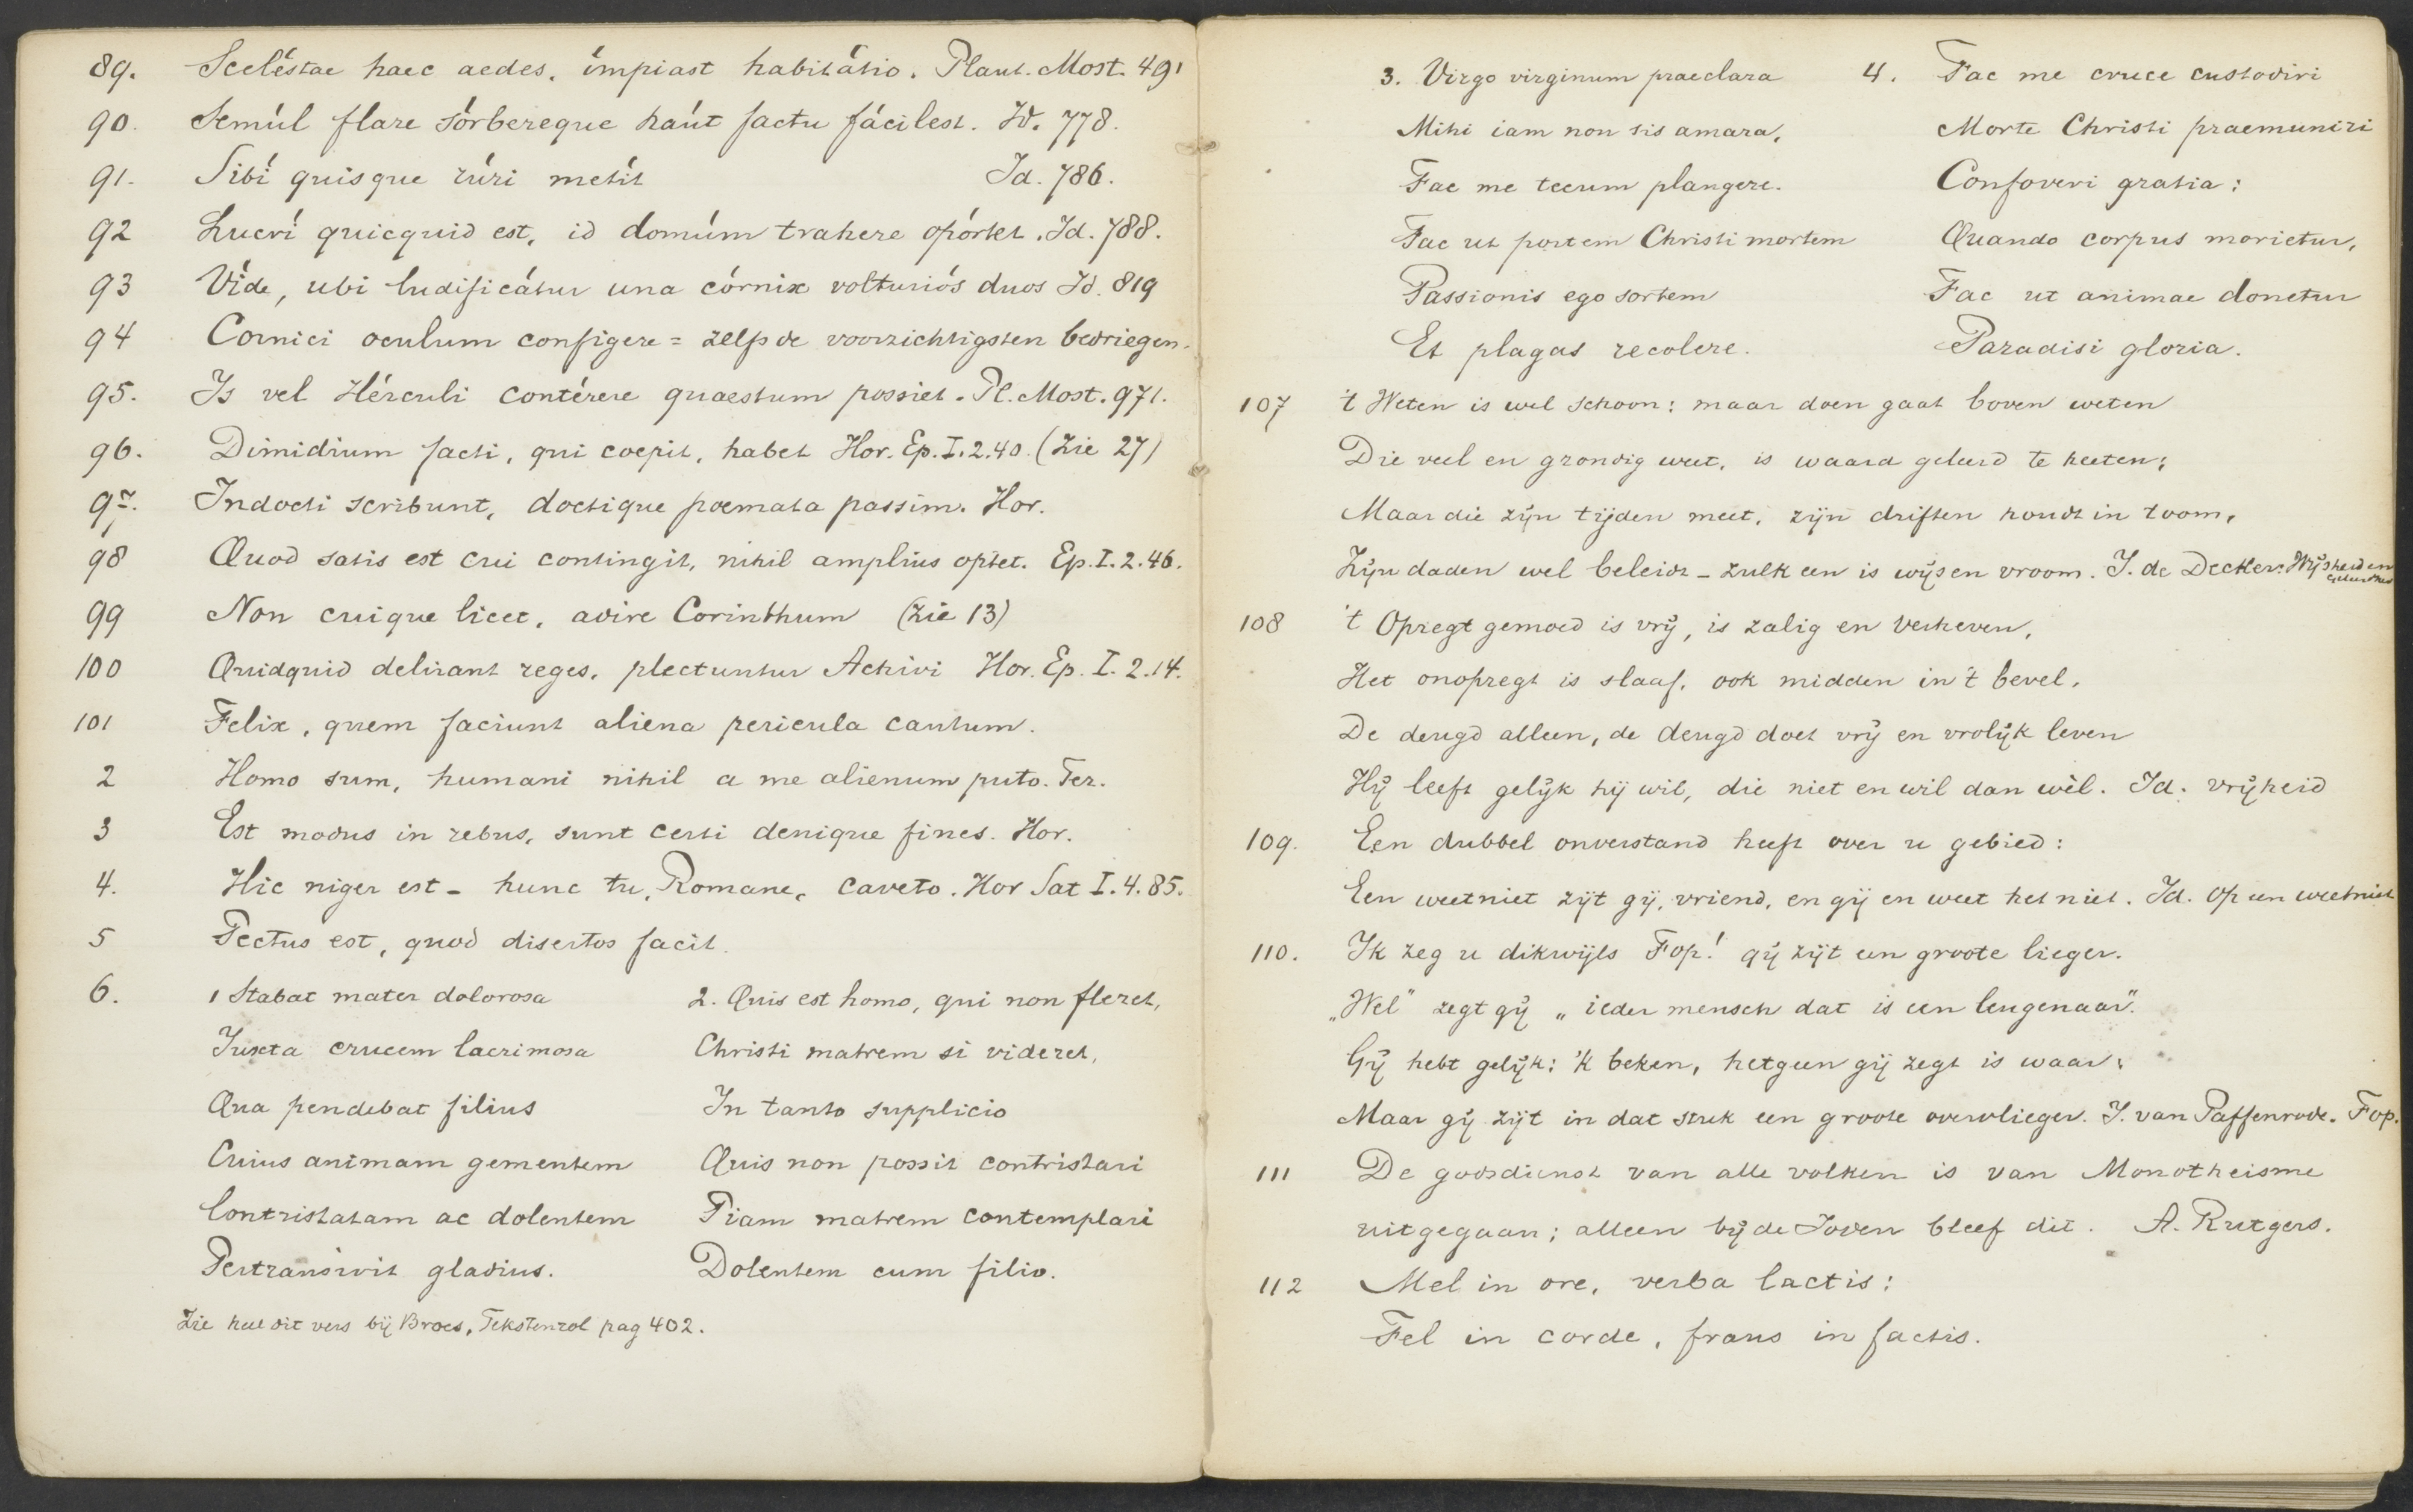 89. Sceléstae haec aedes, ímpiast habitátio. Plaut. Most. 491
90. Semúl flare sórbereque haút factu fácilest. Id. 778.
91. Sibí quisque rúri metít Id. 786.
92 Lucrí quicquid est, id domúm trahere opórtet. Id. 788.
93 Víde, ubi ludificátur una córnix volturiós duos Id. 819
94 Cornici oculum configere = zelfs de voorzichtigsten bedriegen.
95. Is vel Hérculi contérere quaestum possiet. Pl. Most. 971.
96. Dimidium facti, qui coepit, habet Hor. Ep. I. 2. 40. (Zie 27)
97. Indocti scribunt, doctique poemata passim. Hor.
98 Quod satis est cui contingit, nihil amplius optet. Ep. I. 2. 46.
99 Non cuique licet, adire Corinthum (Zie 13)
100 Quidquid delirant reges, plectuntur Achivi Hor. Ep. I. 2. 14.
101 Felix, quem faciunt aliena pericula cautum.
2 Homo sum, humani nihil a me alienum puto. Ter.
3 Est modus in rebus, sunt certi denique fines. Hor.
4. Hic niger est - hunc tu, Romane, caveto. Hor Sat I. 4. 85.
5 Pectus est, quod disertos facit.
6. 1 Stabat mater dolorosa
Juxta crucem lacrimosa
Qua pendebat filius
Cuius animam gementem
Contristatam ac dolentem
Pertransivit gladius.
2. Quis est homo, qui non fleret,
Christi matrem si videret,
In tanto supplicio
Quis non possit contristari
Piam matrem contemplari
Dolentem cum filio.
Zie heel dit vers bij Broes, Tekstenrol pag 402.
3. Virgo virginum praeclara
Mihi iam non sis amara,
Fac me tecum plangere.
Fac ut portem Christi mortem
Passionis ego sortem
Et plagas recolere.
4. Fac me cruce custodiri
Morte Christi praemuniri
Confoveri gratia:
Quando corpus morietur,
Fac ut animae donetur
Paradisi gloria.
107 't Weten is wel schoon: maar doen gaat boven weten
Die veel en grondig weet, is waard geleerd te heeten;
Maar die zijn tijden meet, zijn driften houdt in toom,
Zijn daden wel beleidt - zulk een is wijs en vroom. J. de Decker. Wijsheid en
108 't Opregt gemoed is vrij, is zalig en verheven,
Het onopregt is slaaf, ook midden in 't bevel,
De deugd alleen, de deugd doet vrij en vrolijk leven
Hij leeft gelijk hij wil, die niet en wil dan wèl. Id. vrijheid
109. Een dubbel onverstand heeft over u gebied:
Een weetniet zijt gij, vriend, en gij en weet het niet. Id. Op een weetniet
110. Ik zeg u dikwijls Fop! gij zijt een groote lieger.
„Wel" zegt gij „ieder mensch dat is een leugenaar".
Gij hebt gelijk: 'k beken, hetgeen gij zegt is waar;
Maar gij zijt in dat stuk een groote overvlieger. J. van Paffenrode. Fop.
111 De godsdienst van alle volken is van Monotheisme
uitgegaan; alleen bij de Joden bleef dit. A. Rutgers.
112 Mel in ore, verba lactis:
Fel in corde, fraus in factis.